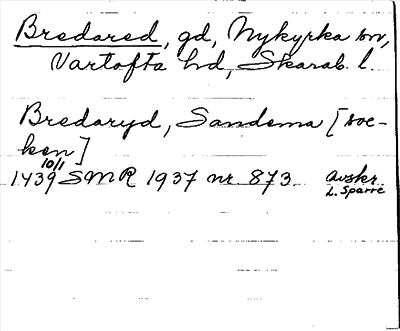 Bredared, gd, Nykyrka sn,
Vartofta hd, Skarab. l.
Bredaryd, Sandema [soc-
ken]
1439 10/1 SMR 1937 nr 873. Avskr.
L. Sparre